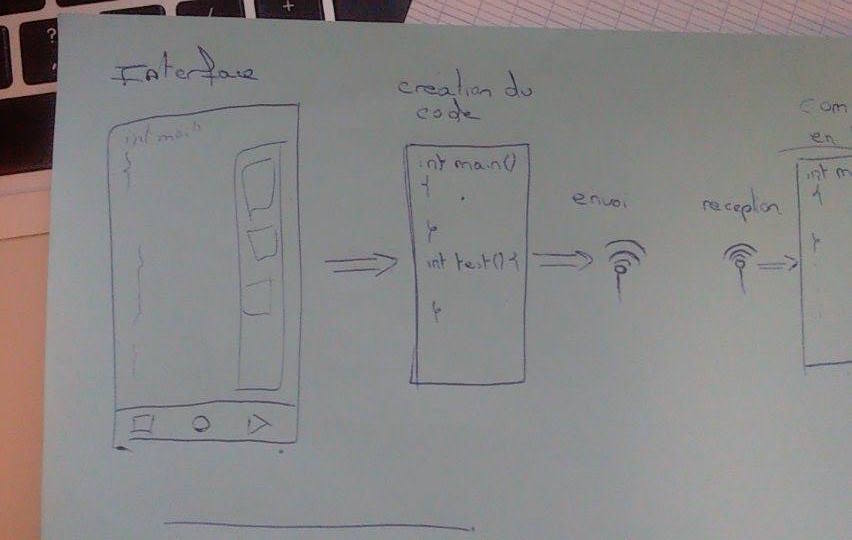 Interface
int main
{
création du
code
int main()
{
}
int test(){
}
envoi
reception
com
en
int m
{
}